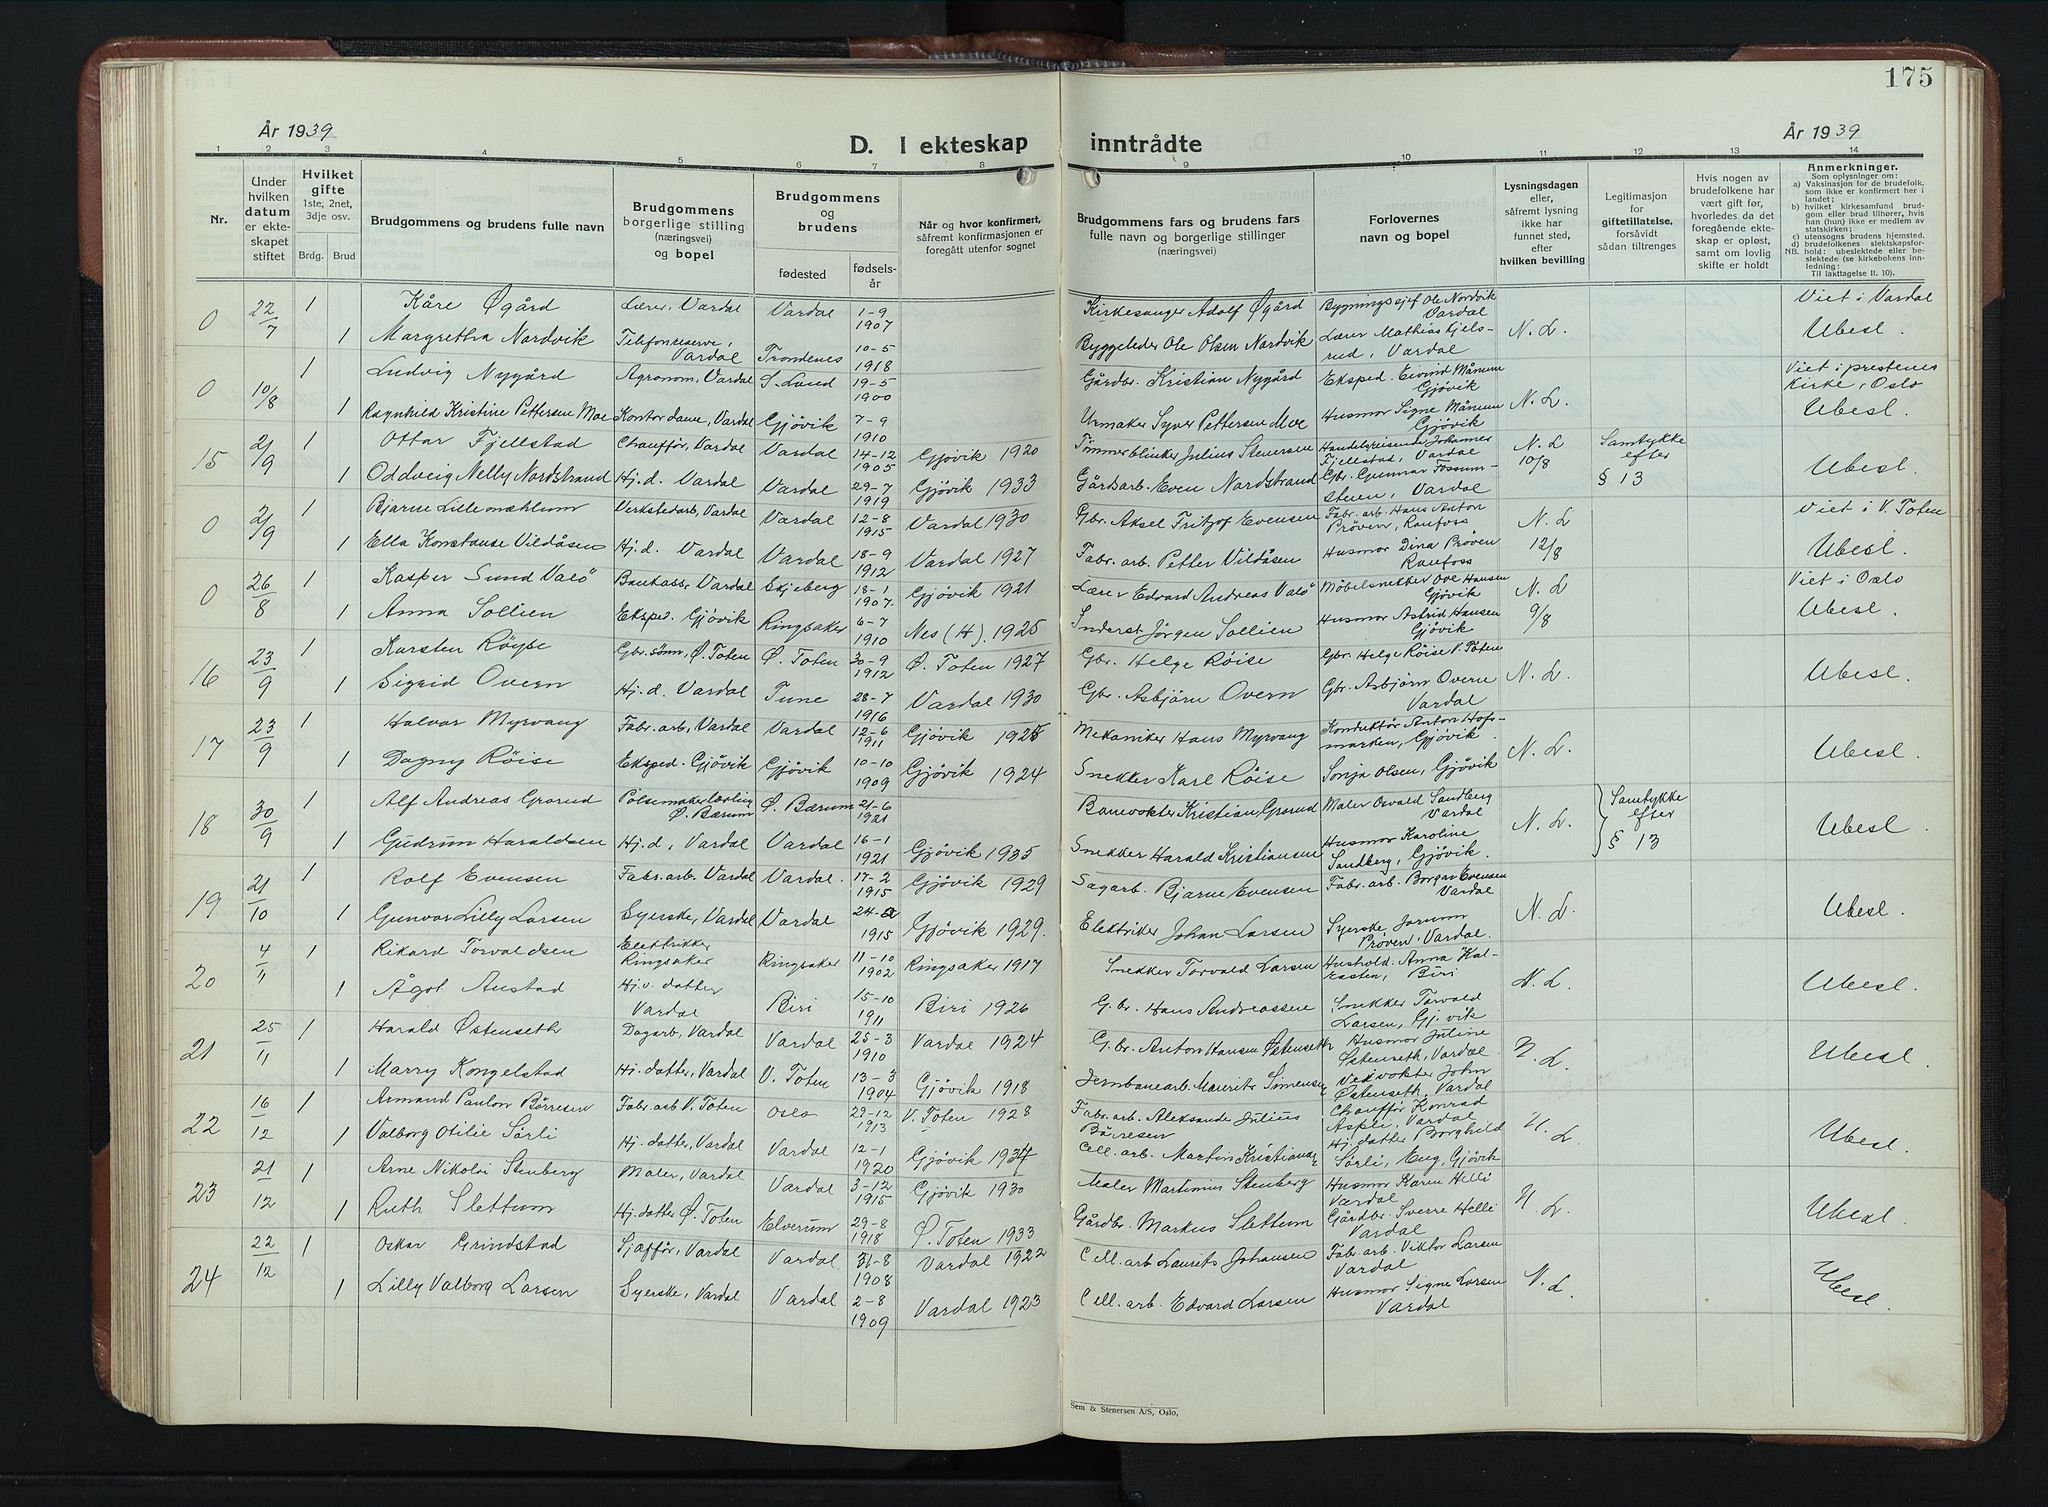 175
År 1939
D. I ekteskap inntrådte
År 1939
1 2 3 4 5 6 7 8 9 10 11 12 13 14
Nr.
Under hvilken datum er ekteskapet stiftet
Hvilket gifte 1ste, 2net, 3dje osv.
Brdg. Brud
Brudgommens og brudens fulle navn
Brudgommens borgerlige stilling (næringsvei) og bopel
Brudgommens og brudens
fødested
fødselsår
Når og hvor konfirmert, såfremt konfirmasjonen er foregått utenfor sognet
Brudgommens fars og brudens fars fulle navn og borgerlige stillinger (næringsvei)
Forlovernes navn og bopel
Lysningsdagen eller, såfremt lysning ikke har funnet sted, efter hvilken bevilling
Legitimasjon for giftetillatelse, forsåvidt sådan tiltrenges
Hvis nogen av brudefolkene har vært gift før, hvorledes da det foregående ekteskap er opløst, samt om lovlig skifte er holdt
Anmerkninger.
Som oplysninger om:
a) Vaksinasjon for de brudefolk, som ikke er konfirmert her i landet;
b) hvilket kirkesamfund brudgom eller brud tilhører, hvis han (hun) ikke er medlem av statskirken;
c) utensogns brudens hjemsted.
d) brudefolkenes slektskapsforhold: ubeslektede eller beslektede (se kirkebokens innledning:
NB.
Til iakttagelse II. 10).
0 22/7 1 Kåre Øgård Lærer, Vardal Vardal 1-9 1907 Kirkesanger Adolf Øgård Bygningssjef Ole Nordvik Vardal N. L. Viet i Vardal
1 Margretha Nordvik Telefonreserve, Vardal Trondenes 10-5 1918 Byggeleder Ole Olsen Nordvik Lærer Mathias Fjelsrud, Vardal Ubesl.
0 10/8 1 Ludvig Nygård Agronom, Vardal S. Land 19-5 1900 Gårdbr. Kristian Nygård Eksped. Eivind Månum Gjøvik N. L. Viet i prestenes Kirke, Oslo
1 Ragnhild Kristine Pettersen Moe Kontordame, Vardal Gjøvik 7-9 1910 Urmaker Syver Pettersen Moe Husmor Signe Månum Gjøvik Ubesl.
15 2/9 1 Ottar Fjellstad Chauffør, Vardal Vardal 14-12 1905 Gjøvik 1920 Tømmerblinker Julius Stenersen Handelsreisende Johannes Fjellestad, Vardal N. L 10/8 Samtykke efter § 13
1 Oddveig Nelly Nordstrand Hj.d. Vardal Vardal 29-7 1919 Gjøvik 1933 Gårdsarb. Even Nordstrand Gbr. Gunnar Fossumsteien, Vardal Ubesl.
0 2/9 1 Bjarne Lillemæhlum Verkstedarb, Vardal Vardal 12-8 1915 Vardal 1930 Gbr. Aksel Fritjof Evensen Fabr. arb. Hans Anton Prøven, Raufoss N. L 12/8 Viet i V. Toten
1 Ella Konstanse Vildåsen Hj.d. Vardal Vardal 18-9 1912 Vardal 1927 Fabr. arb. Petter Vildåsen Husmor Dina Prøven Raufoss Ubesl.
0 26/8 1 Kasper Sund Valö Bankass. Vardal Skjeberg 18-1 1907. Gjøvik 1921 Lærer Edvard Andreas Valö Møbelsnekker Ove Hansen Gjøvik N. L 9/8 Viet i Oslo
1 Anna Sollien Eksped. Gjøvik Ringsaker 6-7 1910 Nes (H). 1925 Inderst Jörgen Sollien Husmor Astrid Hansen Gjøvik Ubesl.
16 23/9 1 Karsten Röyse Gbr. sönn, Ø. Toten Ø. Toten 30-9 1912 Ø. Toten 1927 Gbr. Helge Röise Gbr. Helge Röise V. Toten N. L. Ubesl.
1 Sigrid Overn Hj.d. Vardal Tune 28-7 1916 Vardal 1930 Gbr. Asbjörn Overn Gbr. Asbjörn Overn Vardal
17 23/9 1 Halvar Myrvang Fabr. arb, Vardal Vardal 12-6 1911 Gjøvik 1925 Mekaniker Hans Myrvang Konduktør Anton Hofsmarken, Gjøvik N. L. Ubesl.
1 Dagny Röise Eksped. Gjøvik Gjøvik 10-10 1909 Gjøvik 1924 Snekker Karl Röise Sonja Olsen, Gjøvik
18 30/9 1 Alf Andreas Grorud Pölsemakerlærling Ø. Bærum Ø. Bærum 21-6 1921 Banevokter Kristian Grorud Maler Osvald Sandberg Vardal N. L. Samtykke efter § 13 Ubesl.
1 Gudrun Haraldsen Hj.d, Vardal Vardal 16-1 1921 Gjøvik 1935 Snekker Harald Kristiansen Husmor Karoline Sandberg, Gjøvik.
19 21/10 1 Rolf Evensen Fabr. arb. Vardal Vardal. 17-2 1915 Gjøvik 1929 Sagarb. Bjarne Evensen Fabr. arb. Borgar Evensen Vardal N. L. Ubesl.
1 Gunvor Lilly Larsen Syerske, Vardal Vardal 1915 Gjøvik 1929. Elektriker Johan Larsen Syerske Jorunn Prøven, Vardal.
20 4/11 1 Rikard Torvaldsen Elektrikker Ringsaker Ringsaker 11-10 1902 Ringsaker 1917 Snekker Torvald Larsen Hushold. Anna Kalrasten, Biri N. L. Ubesl.
1 Ågot Austad Hj.v. datter Vardal Biri 15-10 1911 Biri 1926 G. br. Hans Andreassen Snekker Torvald Larsen, Gj. vik
21 25/11 1 Harald Østenseth Dagarb, Vardal Vardal 25-3 1910 Vardal 1924 G. br. Anton Hansen Østenseth Husmor Juline Østenseth, Vardal N. L. Ubesl.
1 Marry Kongelstad Hj. datter, Vardal V. Toten 13-3 1904 Gjøvik 1918 Jernbanearb. Maurits Simensen Vedvokter John Østenseth, Vardal
22 16/12 1 Armand Paulon Børresen Fabr. arb V. Toten Oslo 29-12 1913 V. Toten 1928 Fabr. arb. Aleksander Julius Børresen Chauffør Konrad Aspli, Vardal N. L. Ubesl.
1 Valborg Otilie Sørli Hj. datter, Vardal Vardal 12-1 1920 Gjøvik 1934 Cell. arb. Martin Kristiansen Hj. datter Borghild Sørli, Eng, Gjøvik
23 21/12 1 Arne Nikolai Stenberg Maler, Vardal Vardal 3-12 1915 Gjøvik 1930 Maler Martinius Stenberg Husmor Karen Helli Vardal N. L. Ubesl.
1 Ruth Slettum Hj. datter Ø. Toten Elverum 29-8 1918 Ø. Toten 1933 Gårdbr. Markus Slettum Gårdbr. Sverre Helli Vardal
24 22/12 1 Oskar Grindstad Sjaffør, Vardal Vardal 31-8 1908 Vardal 1922 Cell. arb Laurits Johansen Fabr. arb. Viktor Larsen Vardal N. L. Ubesl.
1 Lilly Valborg Larsen Syerske, Vardal Vardal 2-8 1909 Vardal 1923 Cell. arb. Edvard Larsen Husmor Signe Larsen Vardal
Sem & Stenersen A/S, Oslo.